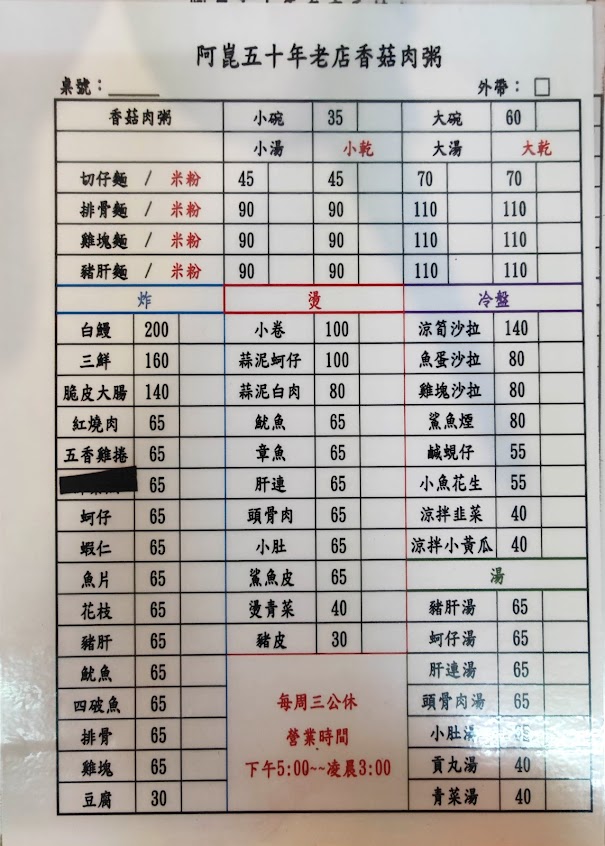 阿崑五十年老店香菇肉粥
桌號：______ 外帶：□
香菇肉粥 小碗 35 大碗 60
小湯 小乾 大湯 大乾
切仔麵 / 米粉 45 45 70 70
排骨麵 / 米粉 90 90 110 110
雞塊麵 / 米粉 90 90 110 110
豬肝麵 / 米粉 90 90 110 110
炸 燙 冷盤
白鰻 200 小卷 100 涼筍沙拉 140
三鮮 160 蒜泥蚵仔 100 魚蛋沙拉 80
脆皮大腸 140 蒜泥白肉 80 雞塊沙拉 80
紅燒肉 65 魷魚 65 鯊魚煙 80
五香雞捲 65 章魚 65 鹹蜆仔 55
65 肝連 65 小魚花生 55
蚵仔 65 頭骨肉 65 涼拌韭菜 40
蝦仁 65 小肚 65 涼拌小黃瓜 40
魚片 65 鯊魚皮 65 湯
花枝 65 燙青菜 40 豬肝湯 65
豬肝 65 豬皮 30 蚵仔湯 65
魷魚 65 肝連湯 65
四破魚 65 每周三公休 頭骨肉湯 65
排骨 65 營業時間 小肚湯
雞塊 65 下午5:00~~凌晨3:00 貢丸湯 40
豆腐 30 青菜湯 40